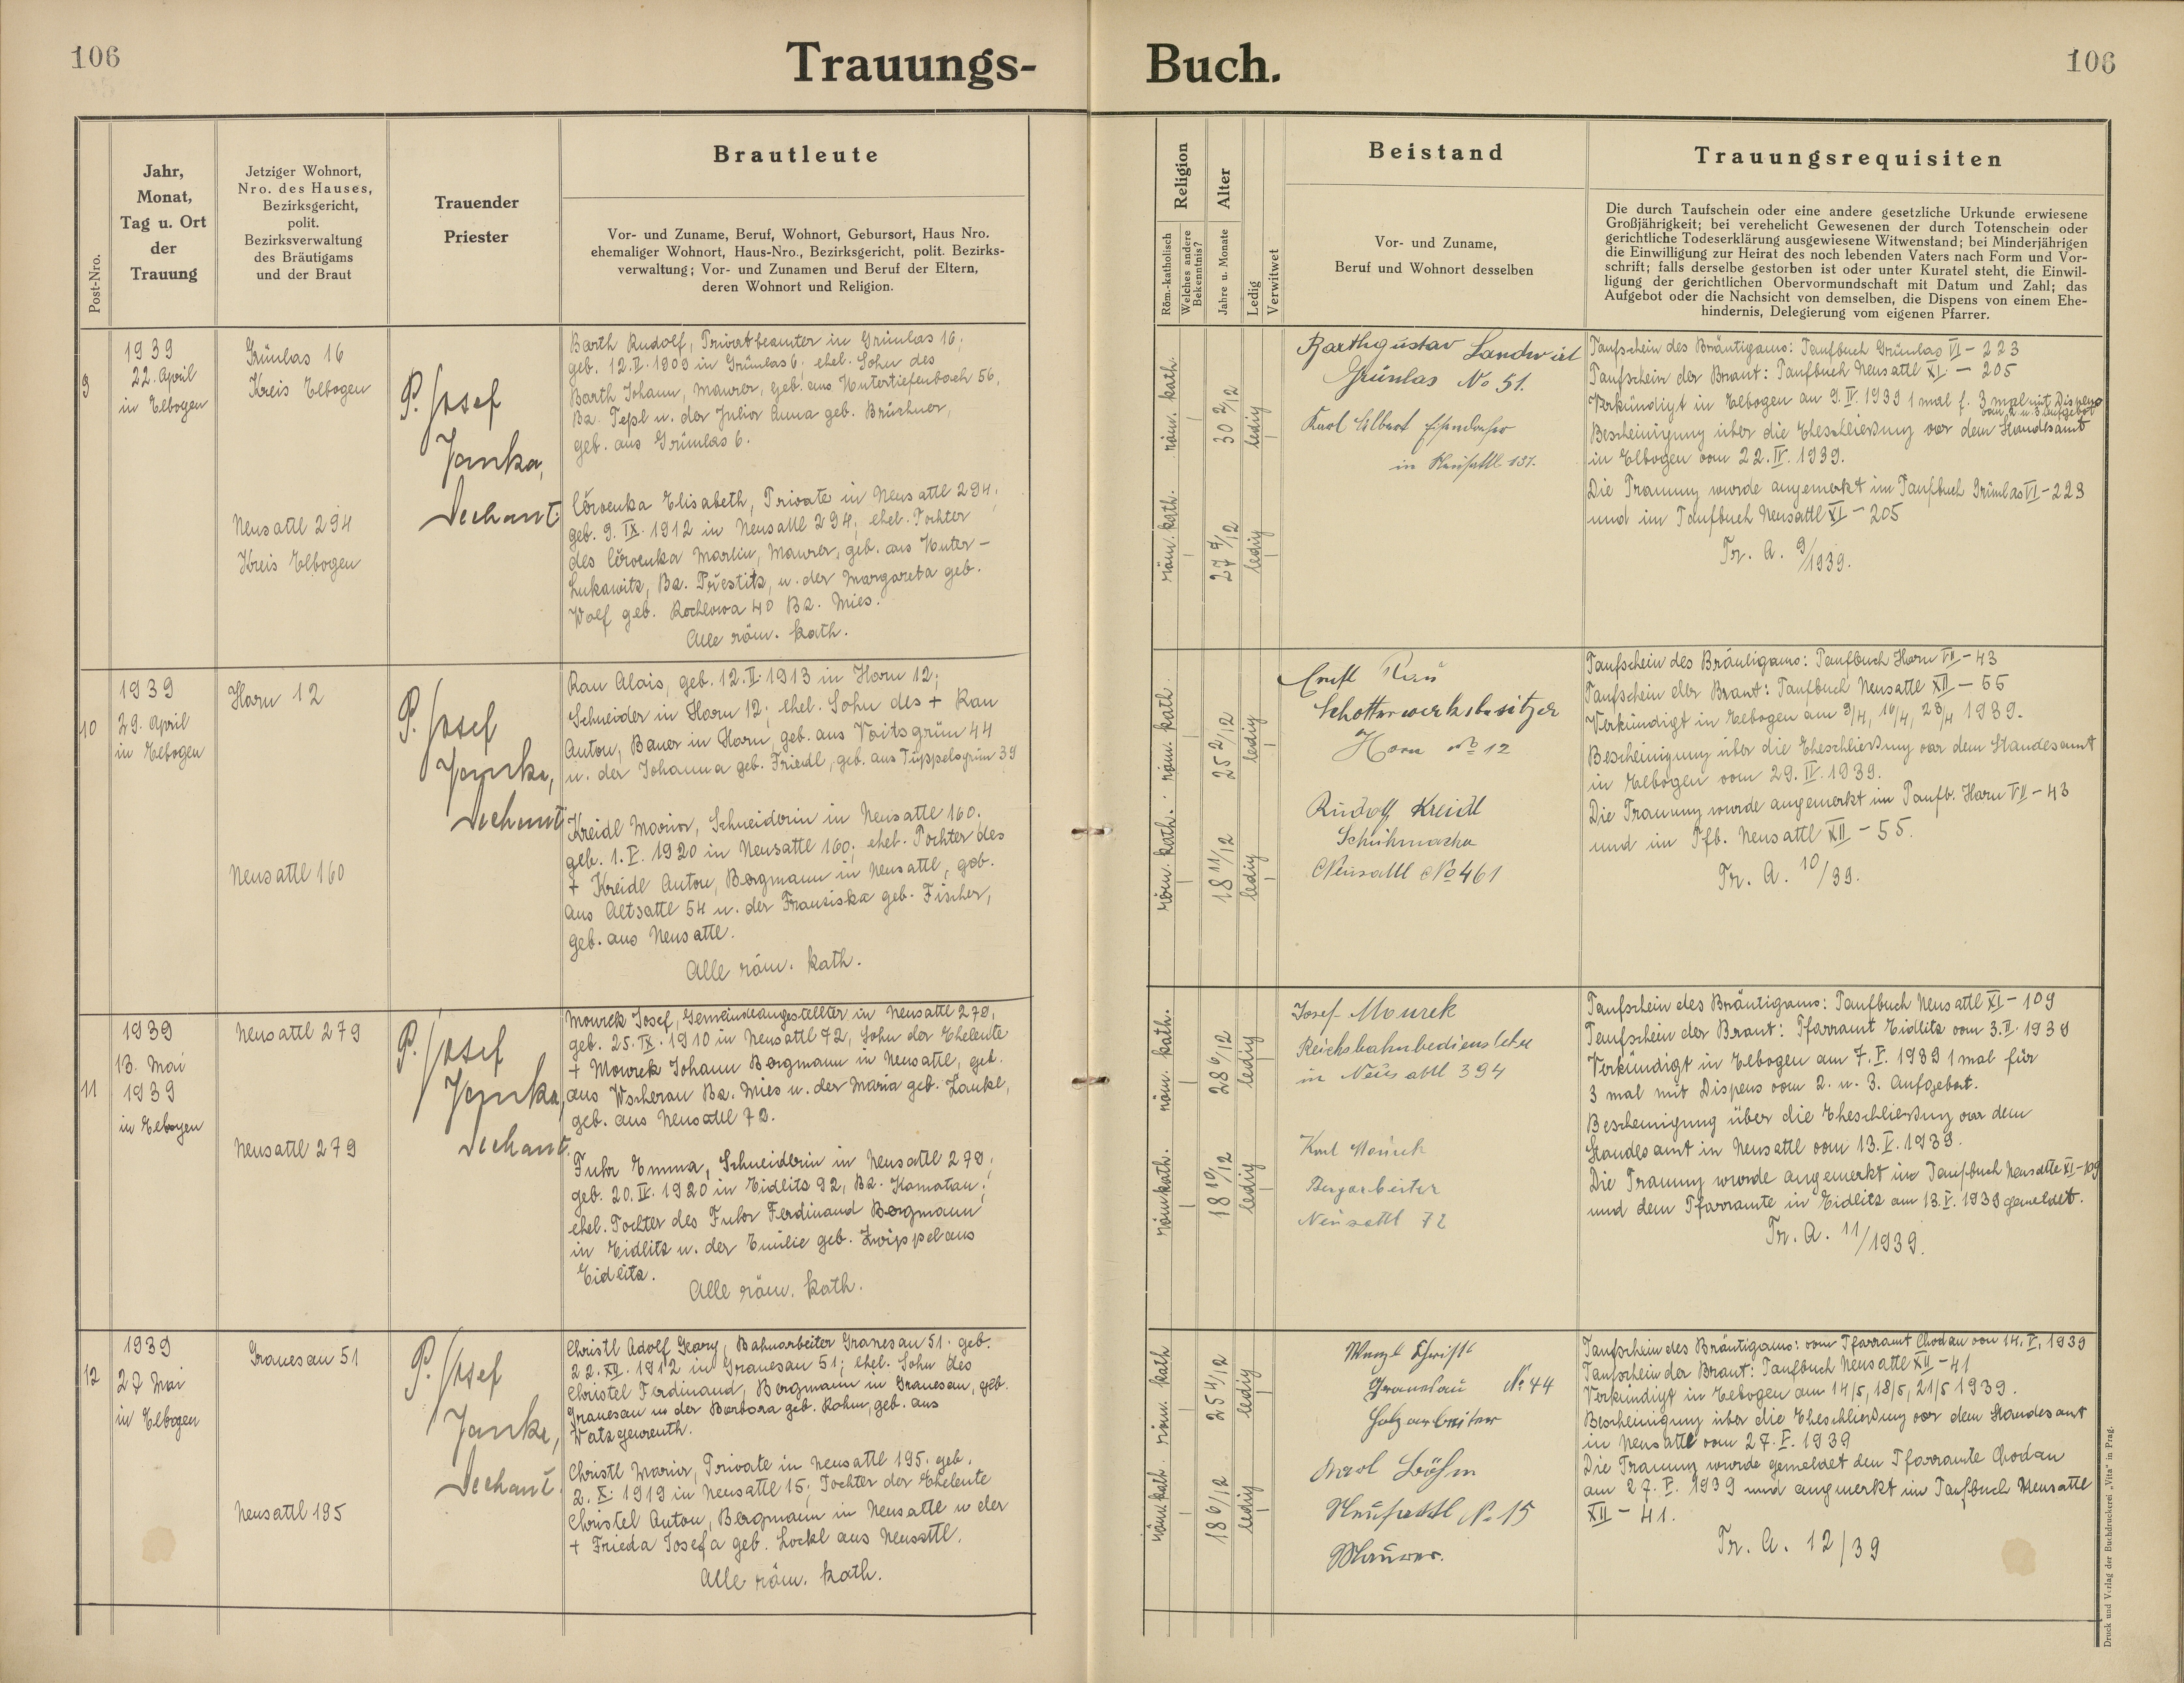 106
Trauungs-
Buch.
106
Post-Nro.
Jahr,
Monat,
Tag u. Ort
der
Trauung
Jetziger Wohnort,
Nro. des Hauses,
Bezirksgericht,
polit.
Bezirksverwaltung
des Bräutigams
und der Braut
Trauender
Priester
Brautleute
Vor- und Zuname, Beruf, Wohnort, Geburtsort, Haus Nro.
ehemaliger Wohnort, Haus-Nro., Bezirksgericht, polit. Bezirks-
verwaltung; Vor- und Zunamen und Beruf der Eltern,
deren Wohnort und Religion.
Religion
Röm.-katholisch
Welches andere
Bekenntnis?
Alter
Jahre u. Monate
Ledig
Verwitwet
Beistand
Vor- und Zuname,
Beruf und Wohnort desselben
Trauungsrequisiten
Die durch Taufschein oder eine andere gesetzliche Urkunde erwiesene
Großjährigkeit; bei verehelicht Gewesenen der durch Totenschein oder
gerichtliche Todeserklärung ausgewiesene Witwenstand; bei Minderjährigen
die Einwilligung zur Heirat des noch lebenden Vaters nach Form und Vor-
schrift; falls derselbe gestorben ist oder unter Kuratel steht, die Einwil-
ligung der gerichtlichen Obervormundschaft mit Datum und Zahl; das
Aufgebot oder die Nachsicht von demselben, die Dispens von einem Ehe-
hindernis, Delegierung vom eigenen Pfarrer.
9
1939
22. April
in Elbogen
Grünlas 16
Kreis Elbogen
Neusattl 294
Kreis Elbogen
P. Josef
Janka,
Dechant
Barth Rudolf, Privatbeamter in Grünlas 16;
geb. 12.II.1909 in Grünlas 6; ehel. Sohn des
Barth Johann, Maurer, geb. aus Untertiefenbach 56,
Bz. Tepl u. der Julia Anna geb. Brüchner,
geb. aus Grünlas 6.
Červenka Elisabeth, Private in Neusattl 294,
geb. 9. IX. 1912 in Neusattl 294; ehel. Tochter
des Červenka Martin, Maurer, geb. aus Unter-
Lukawitz, Bz. Přestitz, u. der Margareta geb.
Wolf geb. Rochlowa 40 Bz. Mies.
Alle röm. kath.
röm. kath.
röm. kath.
30 2/12
27 7/12
ledig
ledig
Barth Gustav Landwirt
Grünlas No 51.
Karl Albert
in Neusattl 131.
Taufschein des Bräutigams: Taufbuch Grünlas VI - 223
Taufschein der Braut: Taufbuch Neusattl XI. - 205
Verkündigt in Elbogen am 9. IV. 1939 1 mal f. 3 mal mit Dispens
vom 2. u. 3. Aufgebot
Bescheinigung über die Eheschließung vor dem Standesamt
in Elbogen vom 22. IV. 1939.
Die Trauung wurde angemerkt im Taufbuch Grünlas VI - 223
und im Taufbuch Neusattl XI - 205
Tr. A. 9/1939.
10
1939
29. April
in Elbogen
Horn 12
Neusattl 160
P. Josef
Janka,
Dechant
Rau Alois, geb. 12. II. 1913 in Horn 12;
Schneider in Horn 12; ehel. Sohn des + Rau
Anton, Bauer in Horn, geb. aus Voitsgrün 44
u. der Johanna geb. Friedl, geb. aus Tüppelsgrün 39
Kreidl Maria, Schneiderin in Neusattl 160,
geb. 1. V. 1920 in Neusattl 160; ehel. Tochter des
+ Kreidl Anton, Bergmann in Neusattl, geb.
aus Altsattl 54 u. der Franziska geb. Fischer,
geb. aus Neusattl.
Alle röm. kath.
röm. kath.
röm. kath.
25 2/12
18 11/12
ledig
ledig
Ernst Rau
Schotterwerksbesitzer
Horn No 12
Rudolf Kreidl
Schuhmacher
Neusattl No 461
Taufschein des Bräutigams: Taufbuch Horn VII - 43
Taufschein der Braut: Taufbuch Neusattl XII - 55
Verkündigt in Elbogen am 9/4, 16/4, 23/4 1939.
Bescheinigung über die Eheschließung vor dem Standesamt
in Elbogen vom 29. IV. 1939.
Die Trauung wurde angemerkt im Taufb. Horn VII - 43
und im Tfb. Neusattl XII - 55.
Tr. A. 10/39.
11
1939
13. Mai
1939
in Elbogen
Neusattl 279
Neusattl 279
P. Josef
Janka,
Dechant
Mourek Josef, Gemeindeangestellter in Neusattl 279,
geb. 25. IX. 1910 in Neusattl 72, Sohn der Eheleute
+ Mourek Johann Bergmann in Neusattl, geb.
aus Wscherau Bz. Mies u. der Maria geb. Zankl,
geb. aus Neusattl 72.
Fuhr Emma, Schneiderin in Neusattl 279;
geb. 20. IV. 1920 in Eidlitz 92, Bz. Komotau;
ehel. Tochter des Fuhr Ferdinand Bergmann
in Eidlitz u. der Emilie geb. Zwippel aus
Eidlitz.
Alle röm. kath.
röm. kath.
röm. kath.
28 6/12
18 10/12
ledig
ledig
Josef Mourek
Reichsbahnbediensteter
in Neusattl 394
Karl Mourek
Bergarbeiter
Neusattl 72
Taufschein des Bräutigams: Taufbuch Neusattl XI - 109
Taufschein der Braut: Pfarramt Eidlitz vom 3. II. 1938
Verkündigt in Elbogen am 7. V. 1939 1 mal für
3 mal mit Dispens vom 2. u. 3. Aufgebot.
Bescheinigung über die Eheschließung vor dem
Standesamt in Neusattl vom 13. V. 1939.
Die Trauung wurde angemerkt im Taufbuch Neusattl XI - 109
und dem Pfarramte in Eidlitz am 13. V. 1939 gemeldet.
Tr. A. 11/1939.
12
1939
27 Mai
in Elbogen
Granesau 51
Neusattl 195
P. Josef
Janka,
Dechant
Christl Adolf Georg, Bahnarbeiter Granesau 51. geb.
22. XII. 1912 in Granesau 51; ehel. Sohn des
Christel Ferdinand, Bergmann in Granesau, geb.
Granesau u der Barbara geb. Rahm, geb. aus
Watzgenreuth.
Christl Maria, Private in Neusattl 195. geb.
2. X. 1919 in Neusattl 15; Tochter der Eheleute
Christel Anton, Bergmann in Neusattl u der
+ Frieda Josefa geb. Lockl aus Neusattl.
Alle röm. kath.
röm. kath
röm. kath.
25 4/12
18 6/12
ledig
ledig
Granesau No 44
Holzarbeiter
Karl Böhm
Neusattl No 15
Maurer.
Taufschein des Bräutigams: vom Pfarramt Chodau von 14. V. 1939
Taufschein der Braut: Taufbuch Neusattl XII - 41
Verkündigt in Elbogen am 14/5, 18/5, 21/5 1939.
Bescheinigung über die Eheschließung vor dem Standesamt
in Neusattl vom 27. V. 1939
Die Trauung wurde gemeldet dem Pfarramte Chodau
am 27. V. 1939 und angemerkt im Taufbuch Neusattl
XII - 41.
Tr. A. 12/39
Druck und Verlag der Buchdruckerei „Vita" in Prag.